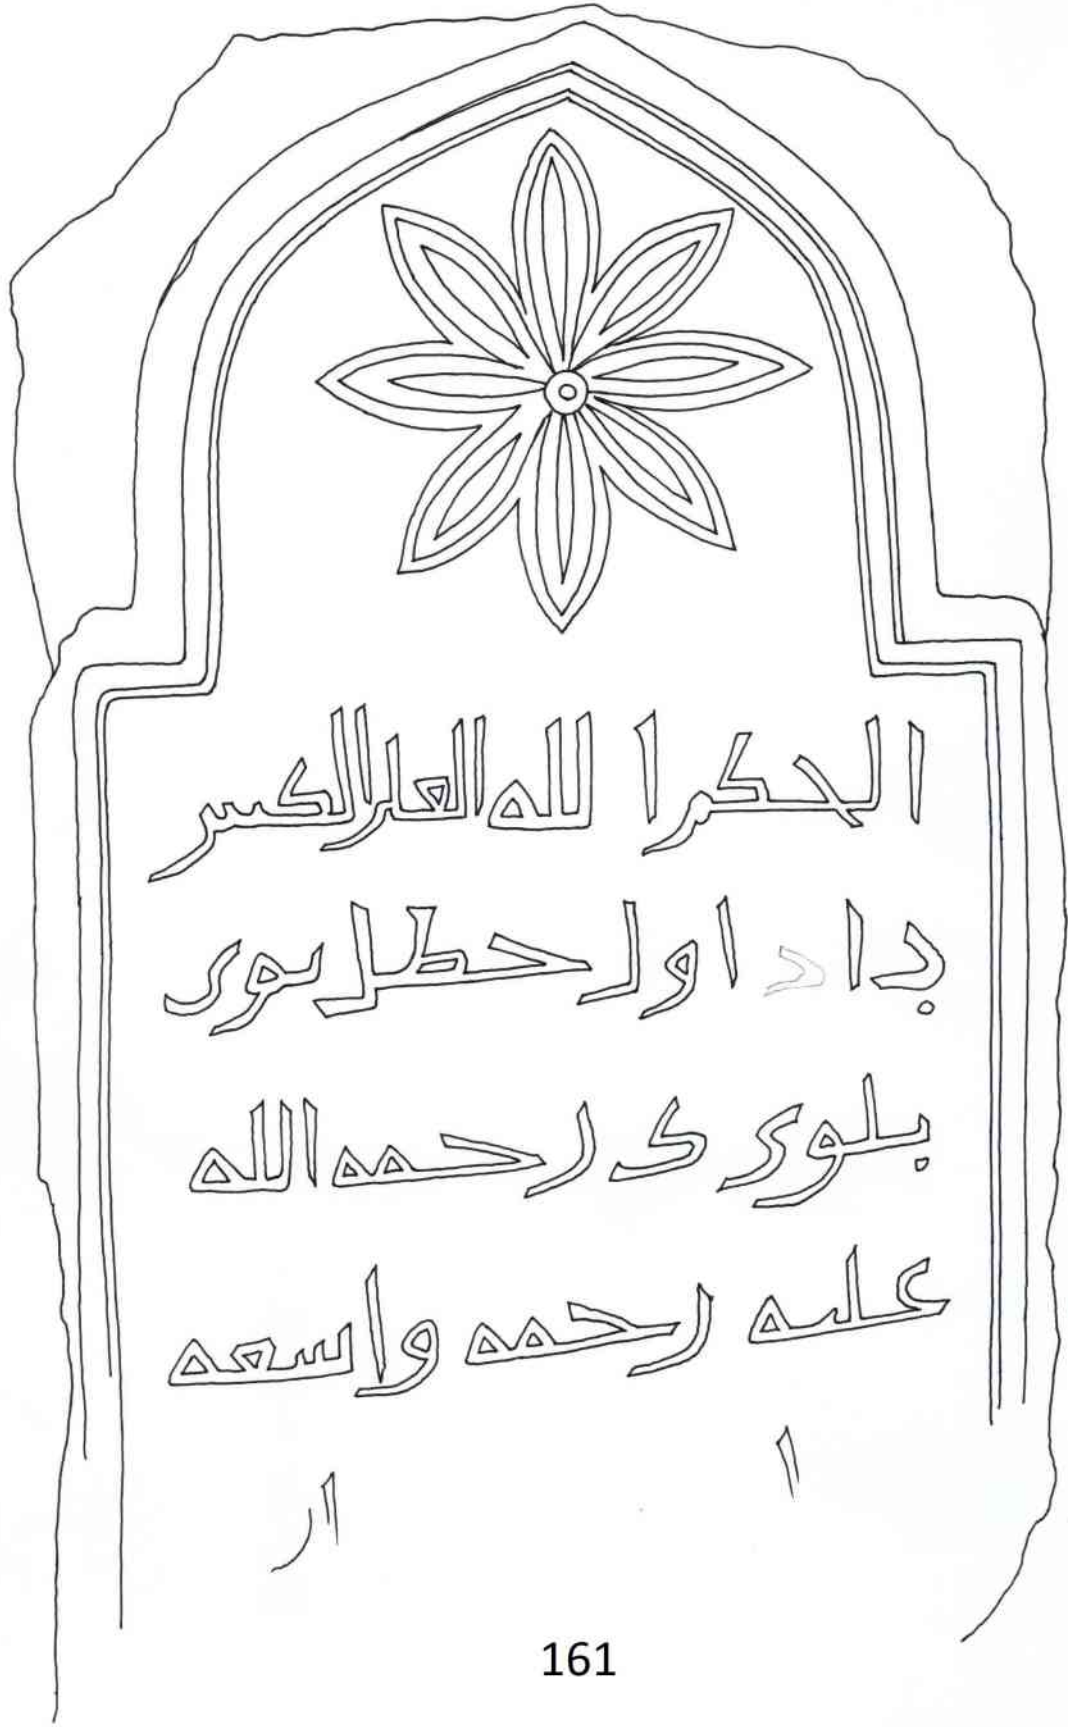 الحكم لله العلى الكبير
داد اول حطلىورى
بلوى ى رحمه الله
عليه رحمه واسعه
ا ار
161